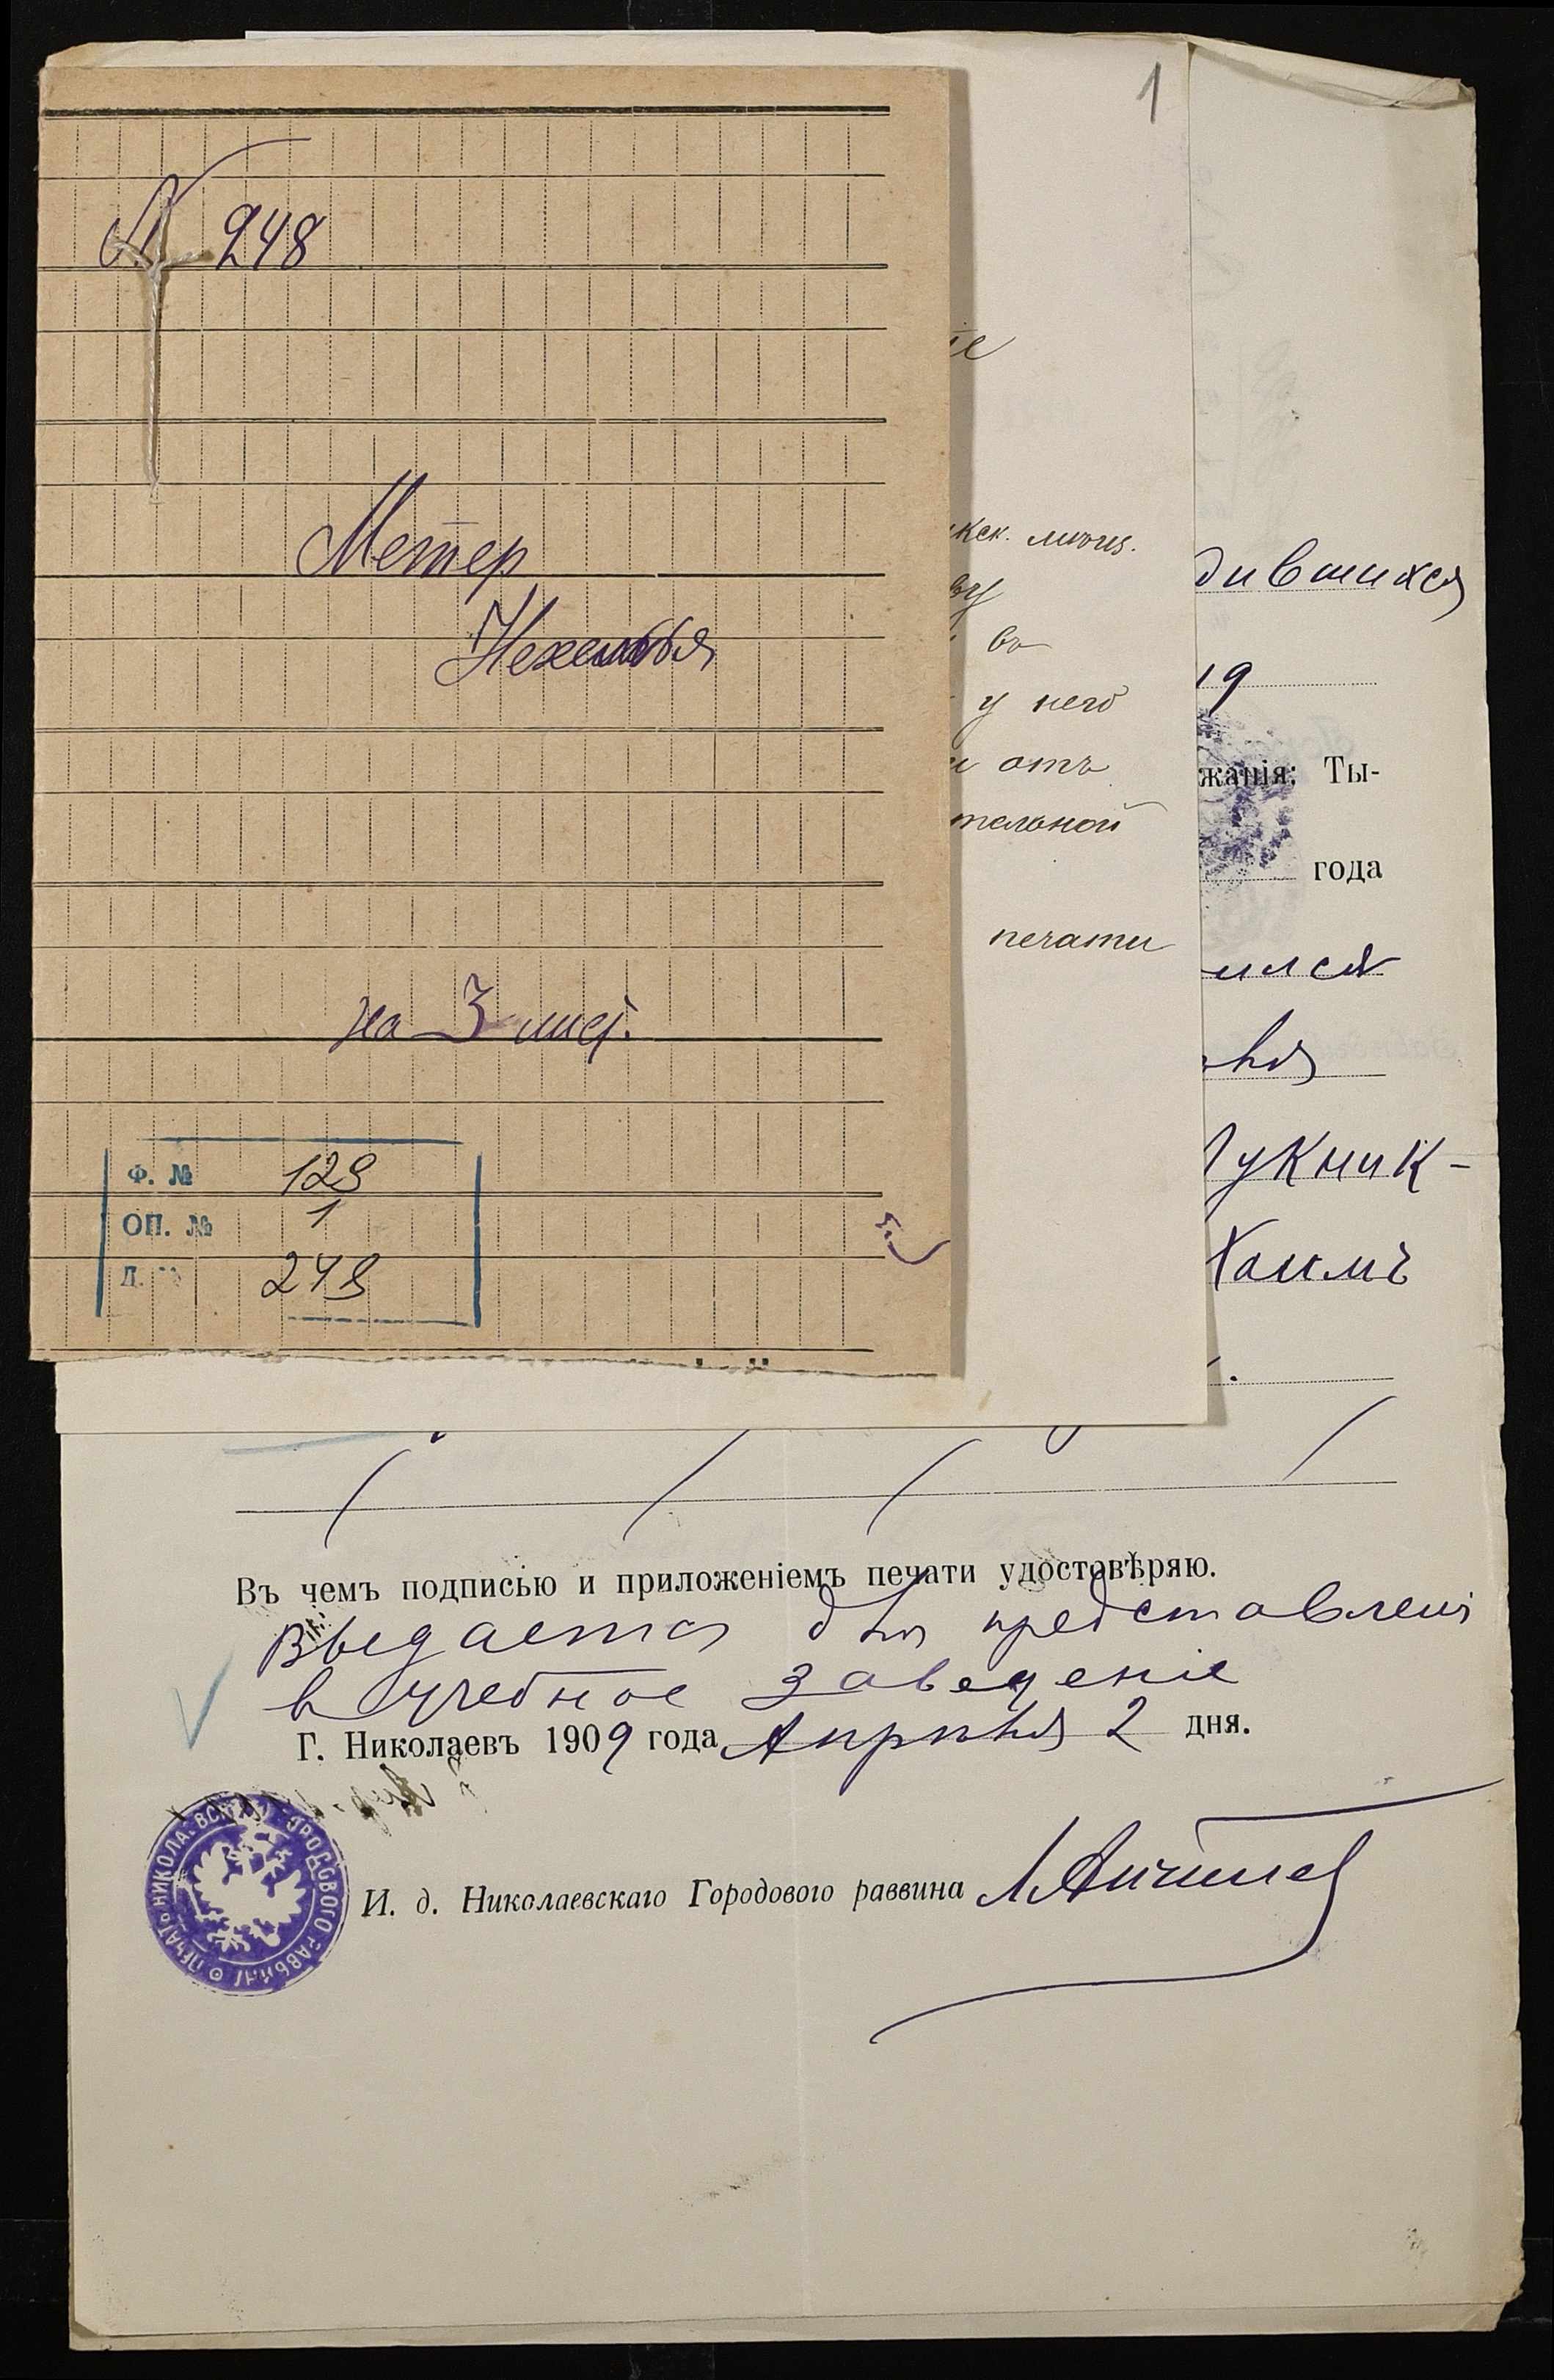 № 248
Метер
Нехемья
на 3 лист.
Ф. № 128
ОП. № 1
Д. 248
1
іе
кск. митид.
ву
въ
у него
и отъ
тельной
печати
дившихся
19
жанія: Ты-
года
ился
Лукник-
Хаимъ
Въ чемъ подписью и приложеніемъ печати удостовѣряю.
Выдается для представлені
в учебное заведеніе
Г. Николаевъ 1909 года Апрѣля 2 дня.
ПЕЧАТЬ НИКОЛАЕВСКАГО ГОРОДОВОГО РАВВИНА
И. д. Николаевскаго Городового раввина